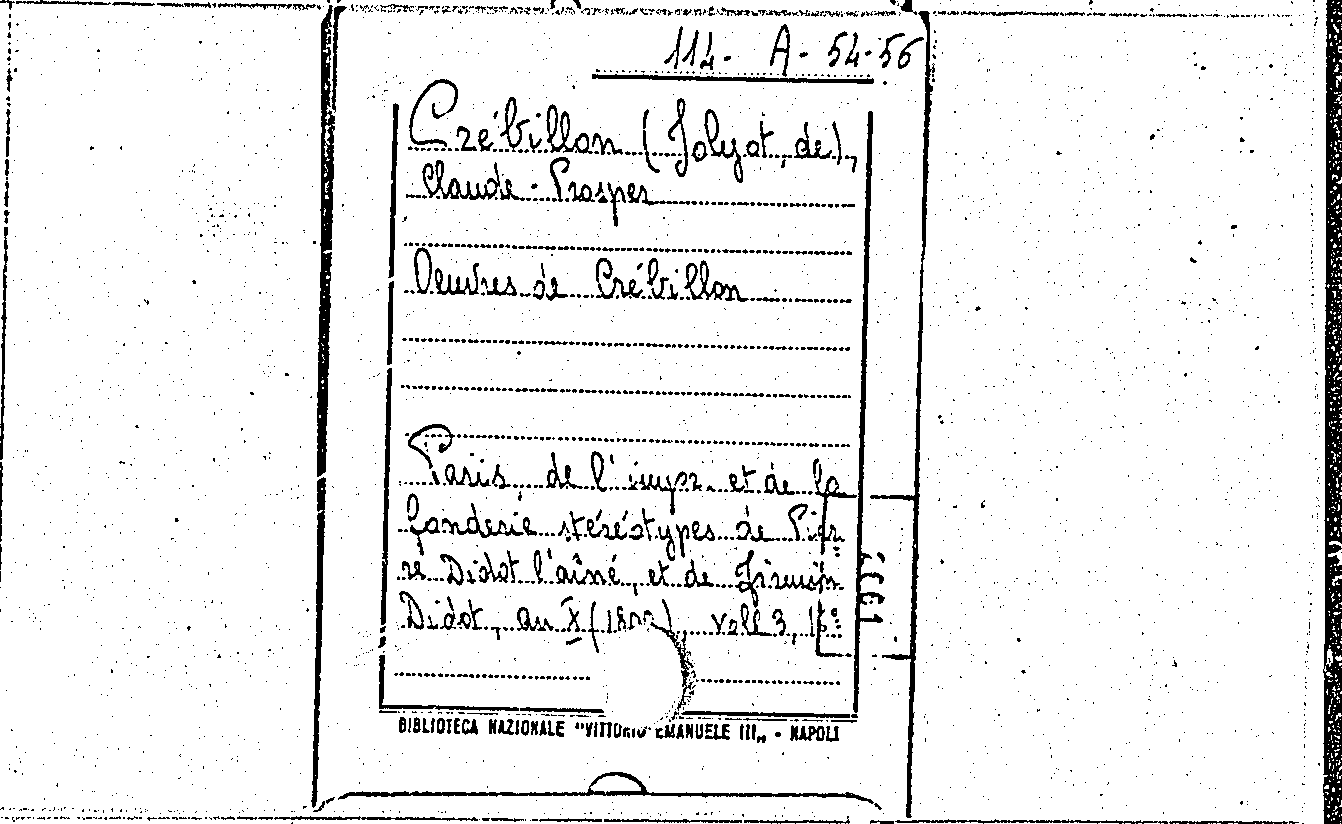 114- A-54-56
Crébillon (Jolyot, de),
Claude-Prosper
Oeuvres de Crébillon
Paris, de l'impr. et de la
fonderie stéréotypes de Pier=
re Didot l'aîné, et de Firmin
Didot, an X (1802), voll 3, 16°
1999
BIBLIOTECA NAZIONALE "VITTORIO EMANUELE III„ - NAPOLI